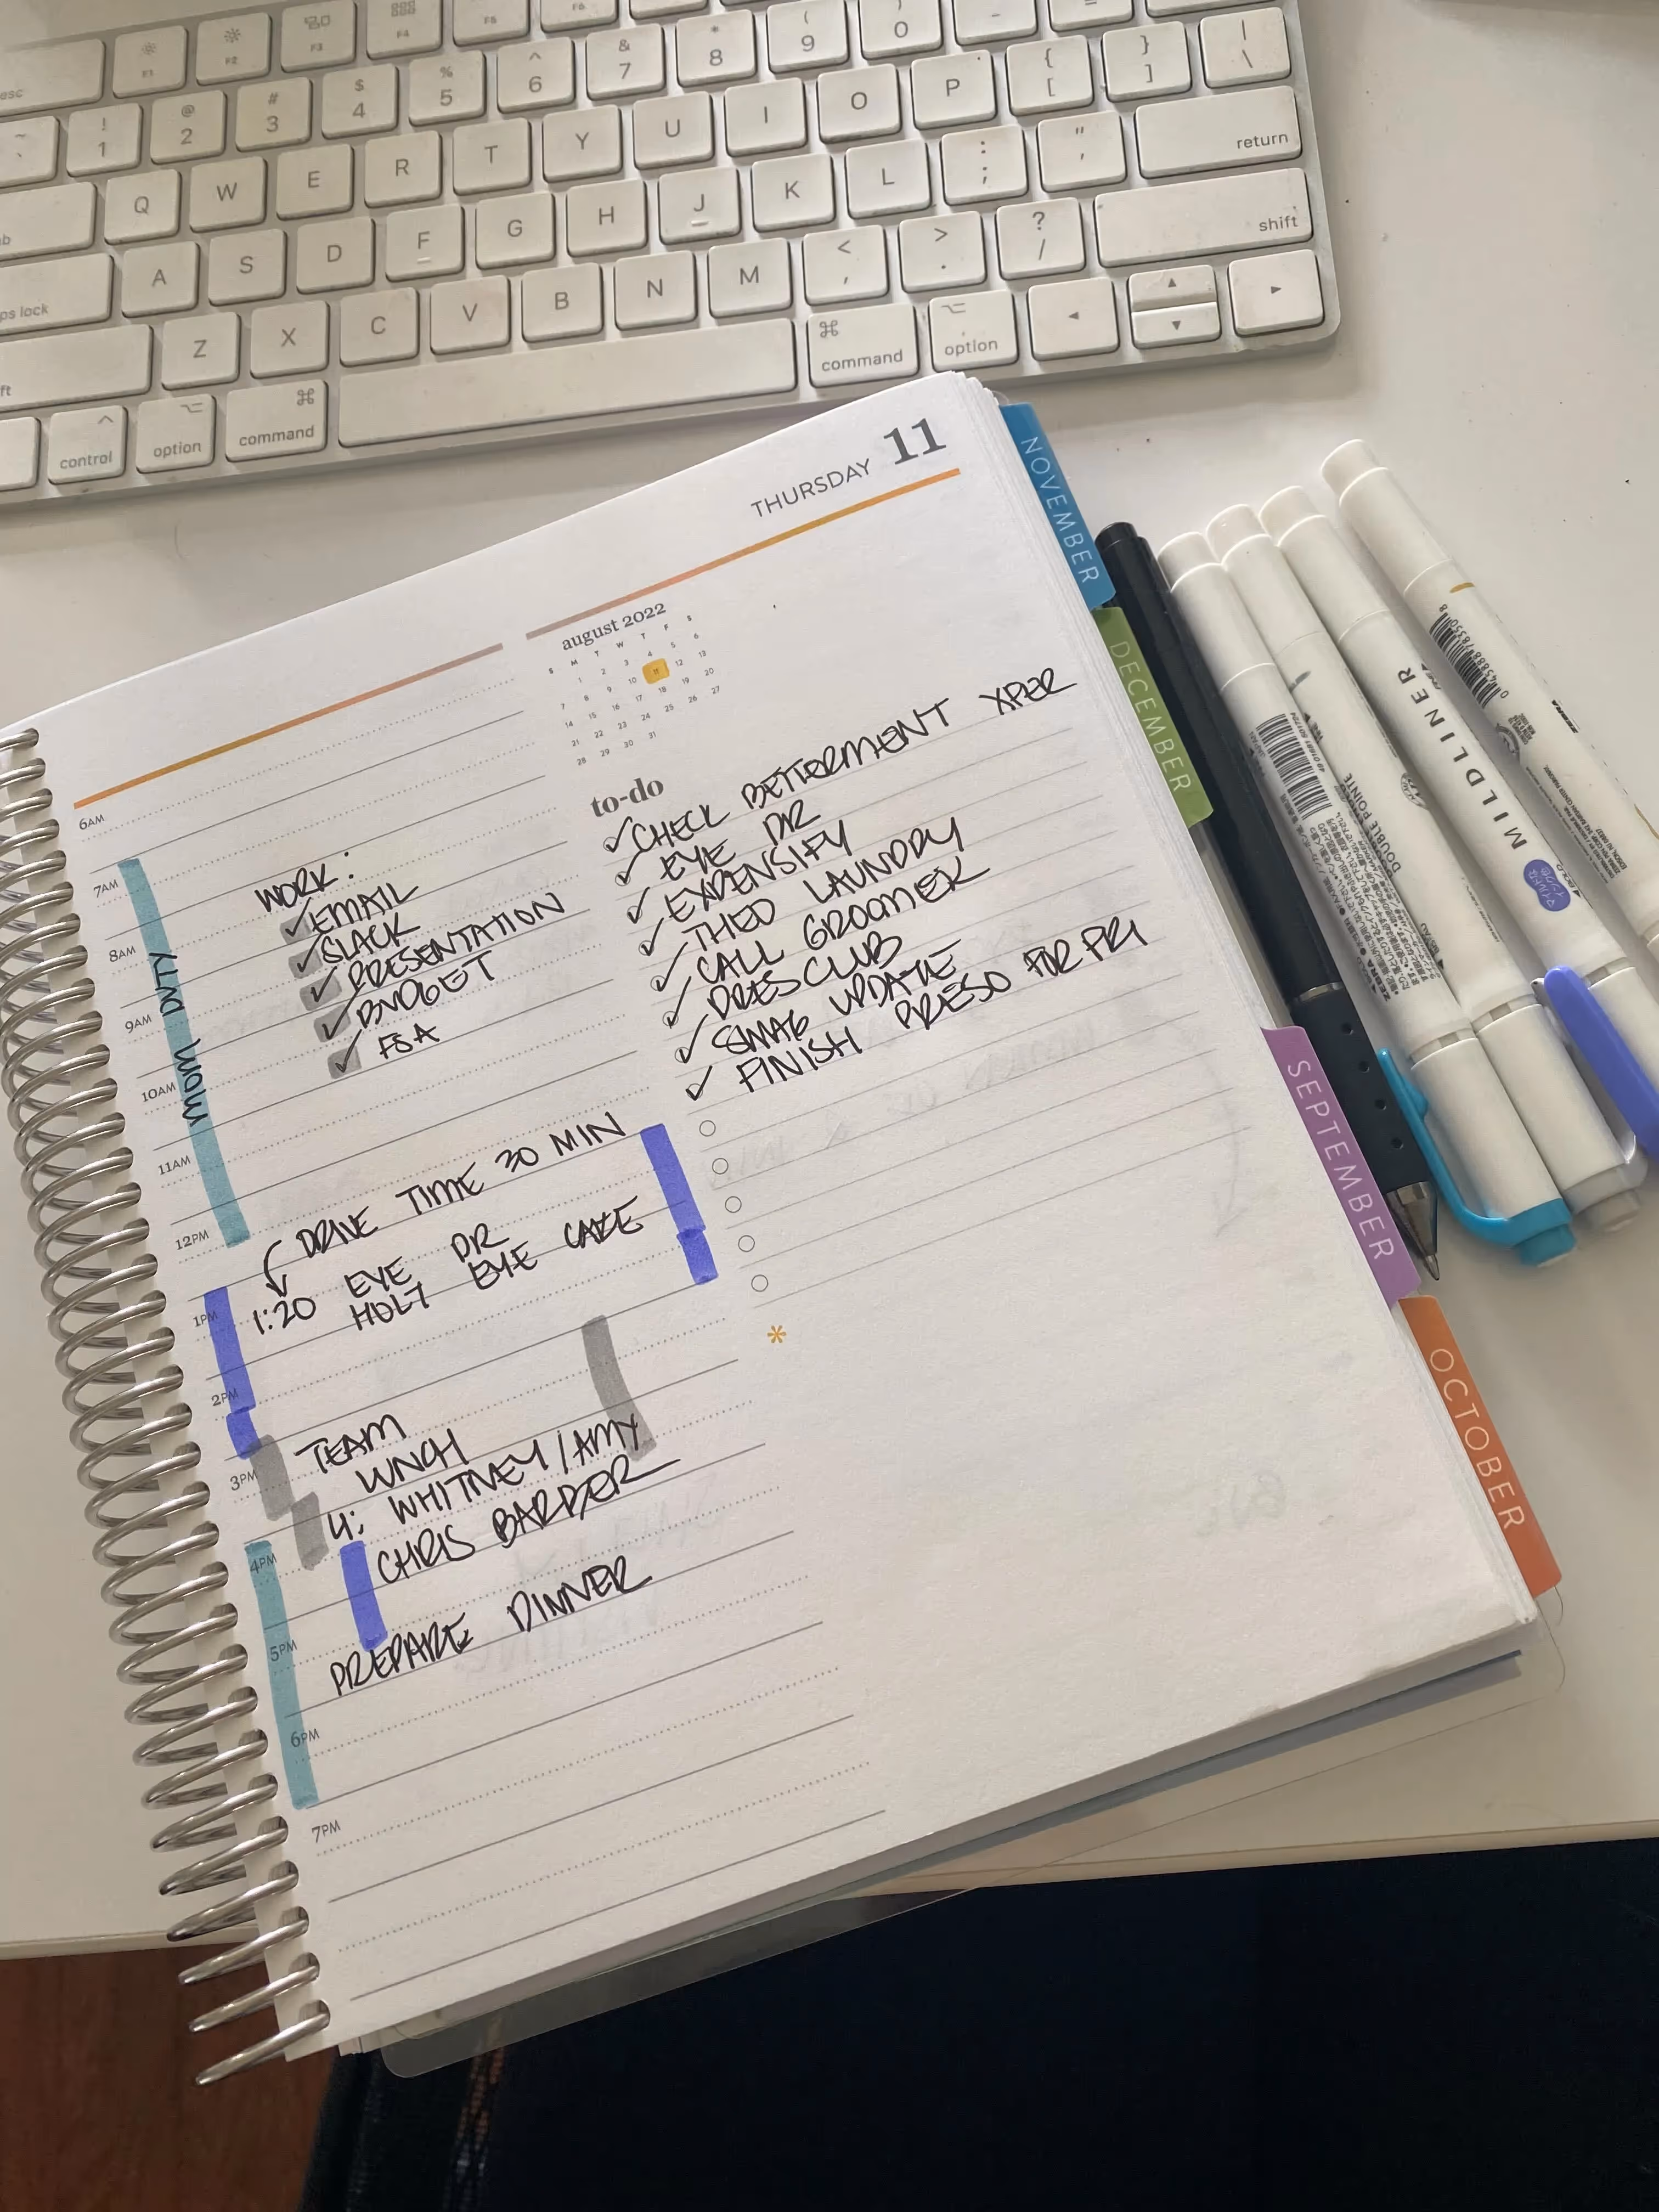 esc
F1
F2
F3
F4
F5
F6
~
`
! 1
@ 2
# 3
$ 4
% 5
^ 6
& 7
* 8
( 9
) 0
_ -
+ =
Q W E R T Y U I O P { [ } ] | \
A S D F G H J K L : ; " ' return
ps lock
Z X C V B N M < , > . ? / shift
control
option
command
command
option
THURSDAY 11
august 2022
S M T W T F S
1 2 3 4 5 6
7 8 9 10 11 12 13
14 15 16 17 18 19 20
21 22 23 24 25 26 27
28 29 30 31
6AM
7AM
8AM
9AM
10AM
11AM
12PM
1PM
2PM
3PM
4PM
5PM
6PM
7PM
MOM DUTY
WORK:
✓ EMAIL
✓ SLACK
✓ PRESENTATION
✓ BUDGET
✓ FSA
DRIVE TIME 30 MIN
1:20 EYE DR
HOLT EYE CARE
TEAM
LUNCH
4: WHITNEY/AMY
CHRIS BARBER
PREPARE DINNER
to-do
✓ CHECK BETTERMENT XFER
✓ EYE DR
✓ EXPENSIFY
✓ THEO LAUNDRY
✓ CALL GROOMER
✓ PRES CLUB
✓ SWAG UPDATE
✓ FINISH PRESO FOR FRI
*
NOVEMBER
DECEMBER
SEPTEMBER
OCTOBER
MILDLINER
DOUBLE POINTE
ZEBRA